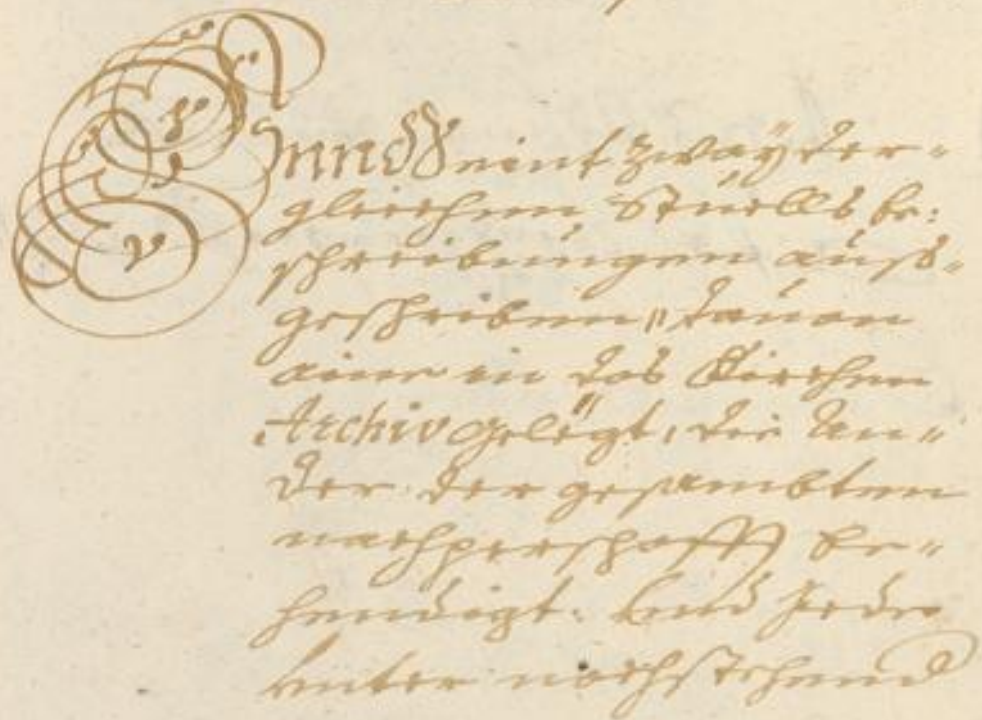 Unnd seint zwaÿ der-
gleichen Stuells be:
schreibungen auß-
geschriben, dauon
aine in das Kirchen
Archiv gelegt, die An-
der der gesambten
nachperschafft be-
hendigt. Und Jede
unter nachstehend